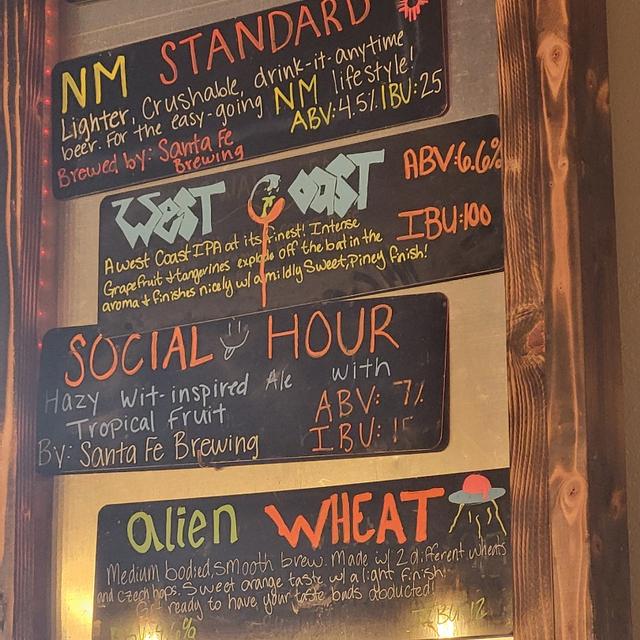 NM STANDARD
Lighter, Crushable, drink-it-anytime
beer. For the easy-going NM lifestyle!
ABV: 4.5% IBU: 25
Brewed by: Santa Fe
Brewing
WEST COAST
ABV: 6.6%
IBU: 100
A West Coast IPA at its finest! Intense
Grapefruit & tangerines explode off the bat in the
aroma & finishes nicely w/ a mildly Sweet, Piney finish!
SOCIAL HOUR
Hazy Wit-inspired Ale with
Tropical Fruit
ABV: 7%
By: Santa Fe Brewing
IBU:
alien WHEAT
Medium bodied, smooth brew. Made w/ 2 different wheats
and czech hops. Sweet orange taste w/ a light finish!
Get ready to have your taste buds abducted!
IBU: 12